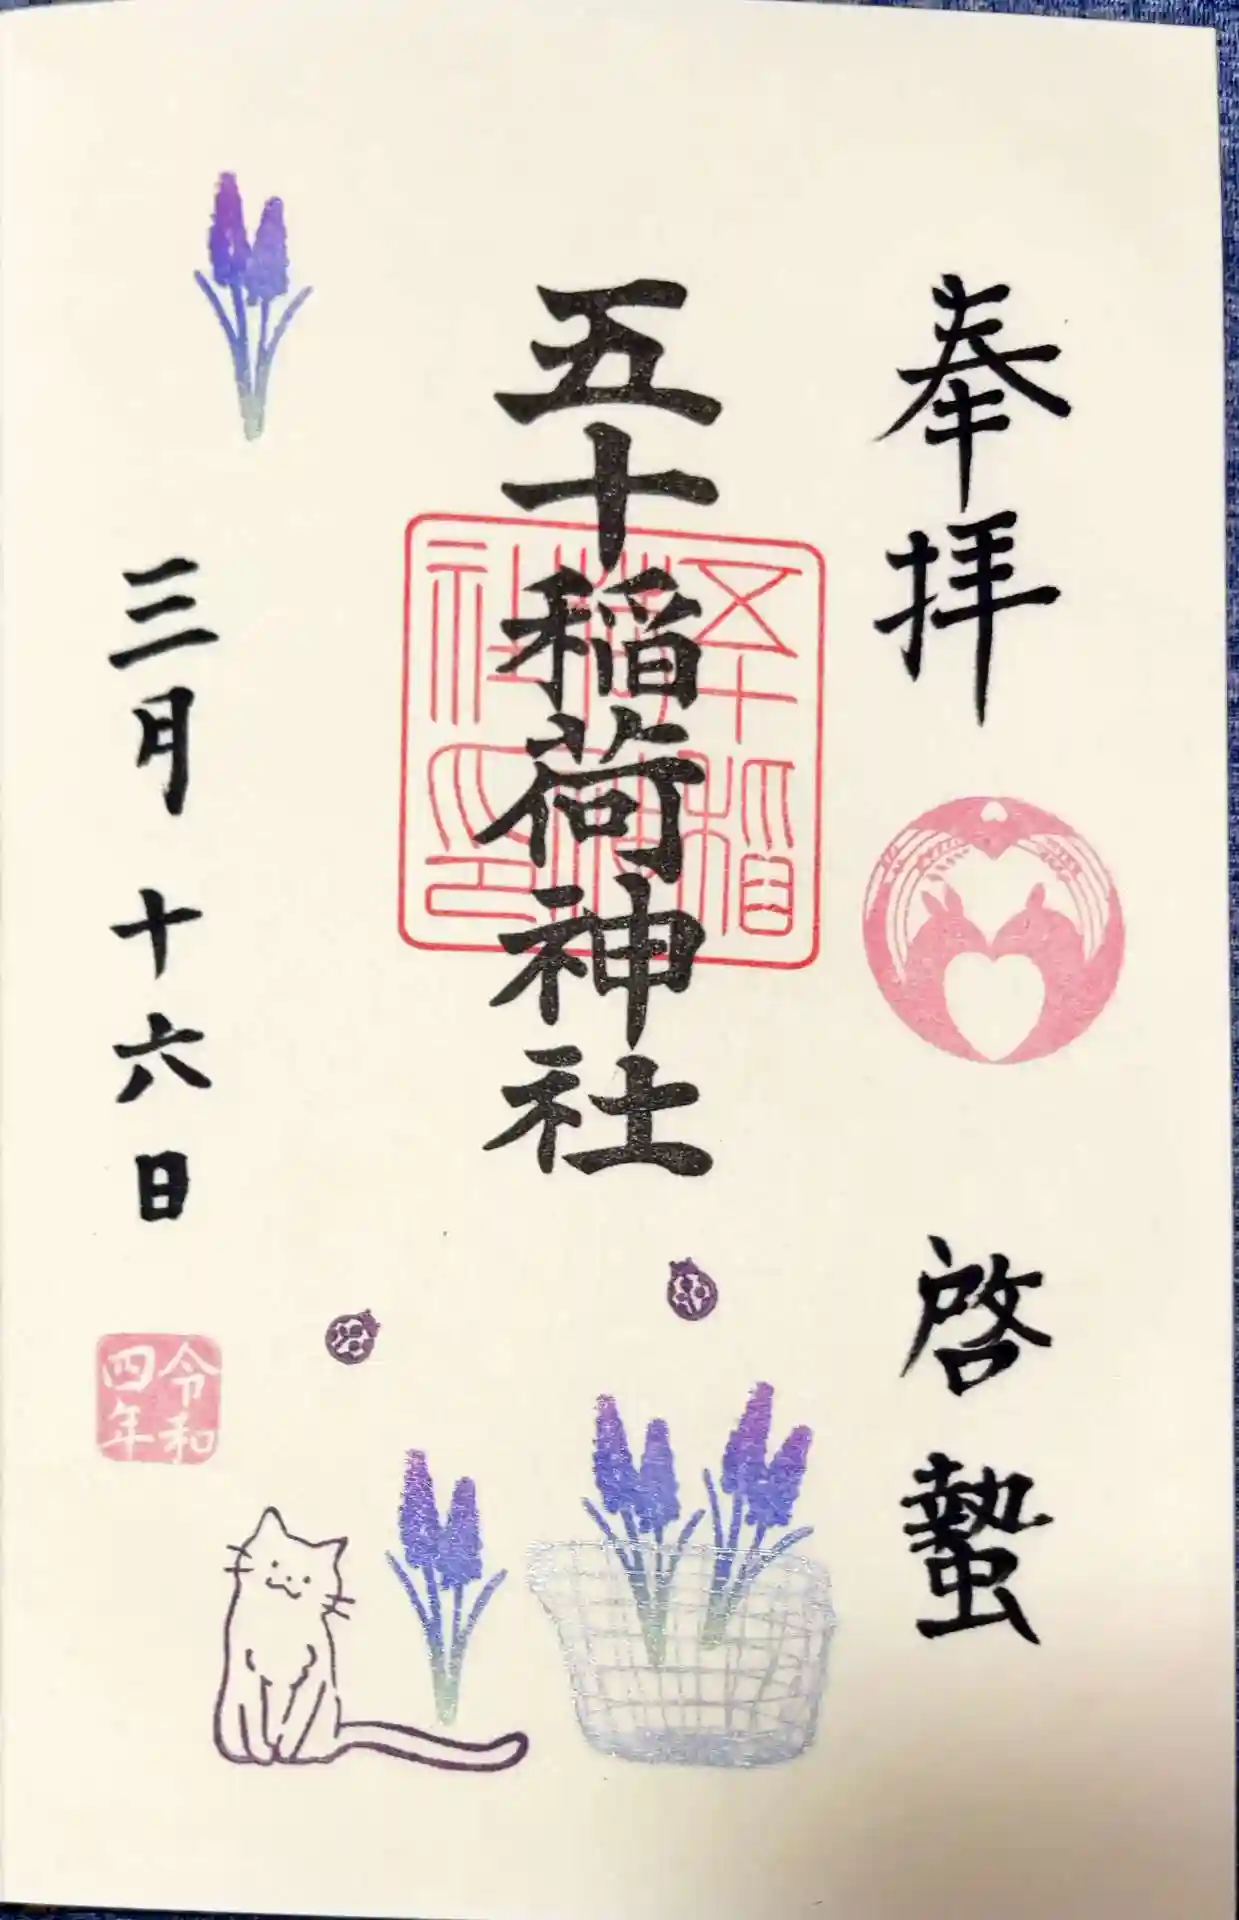 奉拝
啓蟄
五十稲荷神社
五十稲
荷神
社印
三月十六日
令和
四年